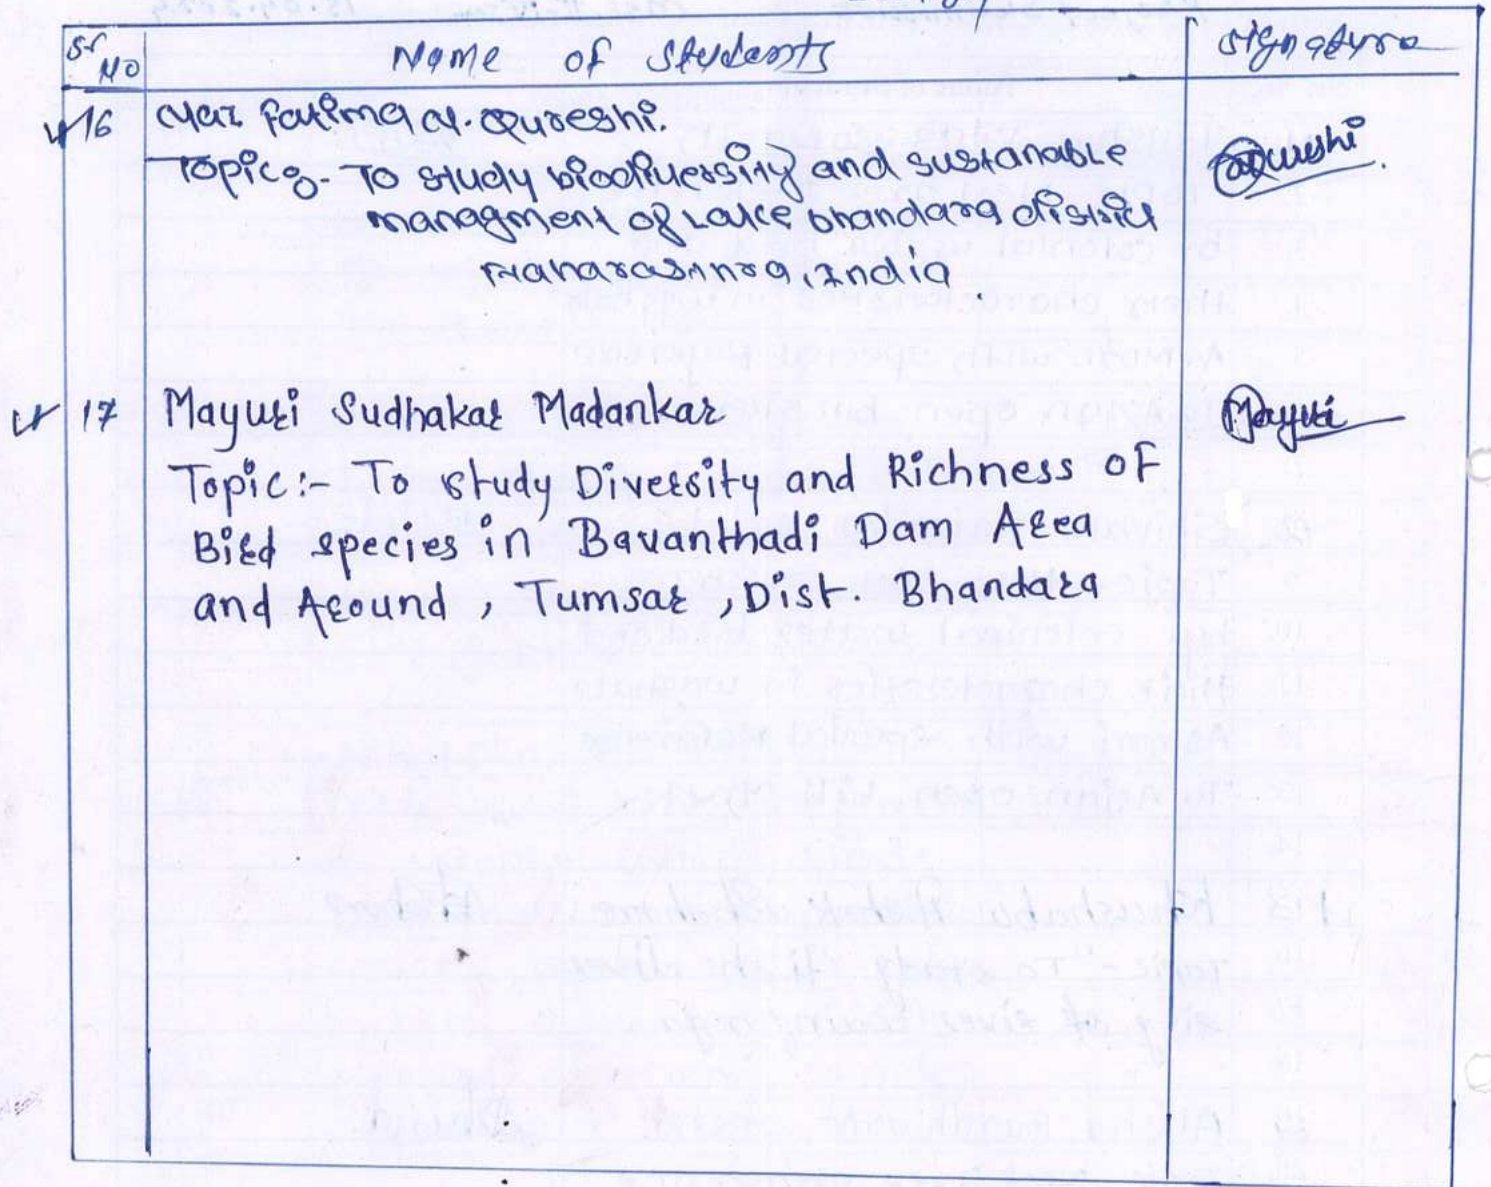 Sr No Name of Students Signature
16 Naz Fatima A. Qureshi. Qureshi
Topic:- To study biodiversity and sustanable
managment of Lake bhandara district
Maharashtra, India.
17 Mayuri Sudhakar Madankar Mayuri
Topic:- To study Diversity and Richness of
Bird species in Bavanthadi Dam Area
and Around, Tumsar, Dist. Bhandara